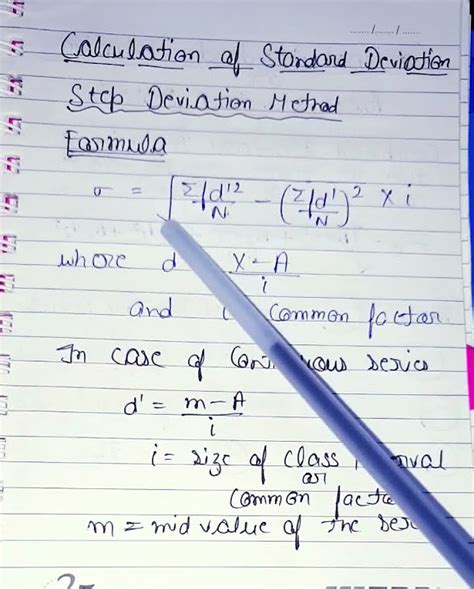 Calculation of Standard Deviation
Step Deviation Method
Formula
σ = √ Σfd'²/N − (Σfd'/N)² × i
where d X - A / i
and i Common factor
In case of series
d' = m - A / i
i = size of class
or
Common
m = mid value of the